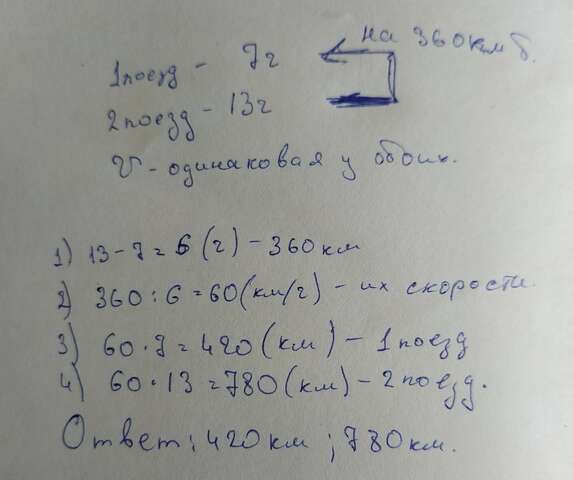 1 поезд - 7 г на 360 км б.
2 поезд - 13 г
V - одинаковая у обоих.
1) 13-7=6 (г) - 360 км
2) 360:6=60 (км/г) - их скорости.
3) 60·7=420 (км) - 1 поезд
4) 60·13=780 (км) - 2 поезд.
Ответ: 420 км ; 780 км.